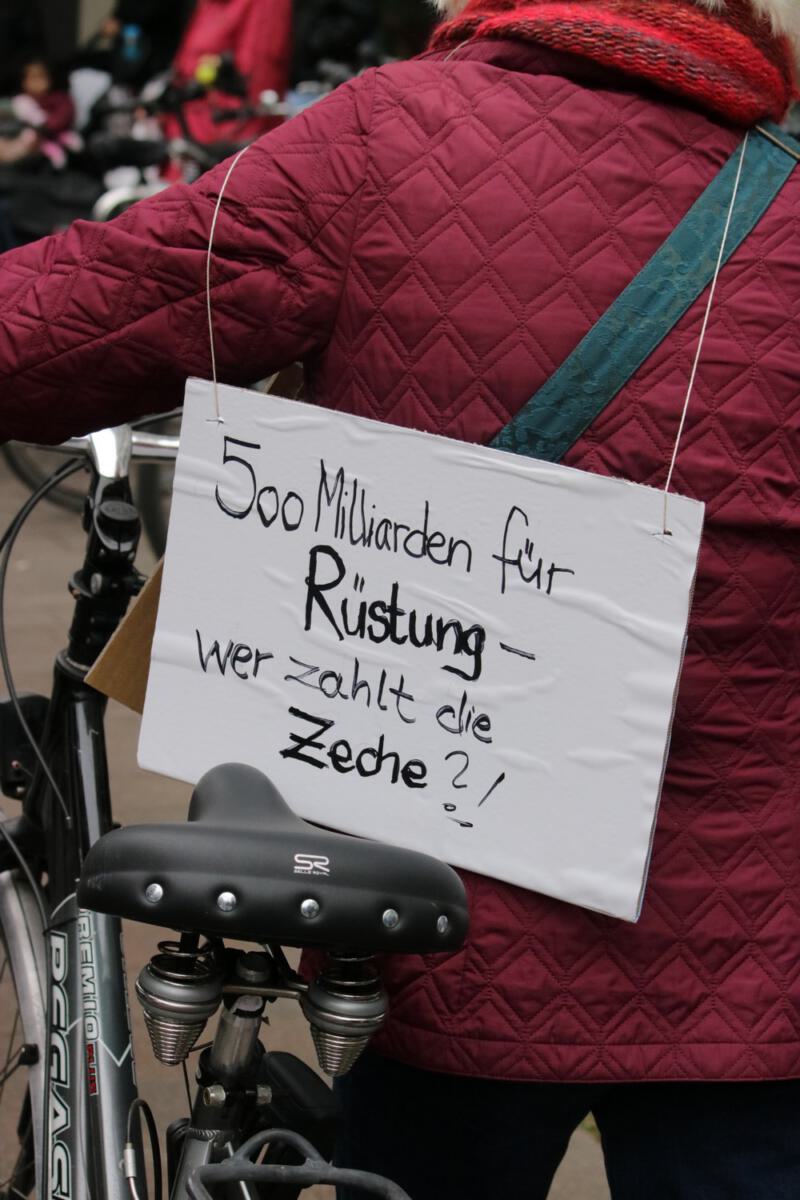 500 Milliarden für
Rüstung –
wer zahlt die
Zeche?!
SR
SELLE ROYAL
PEGAS